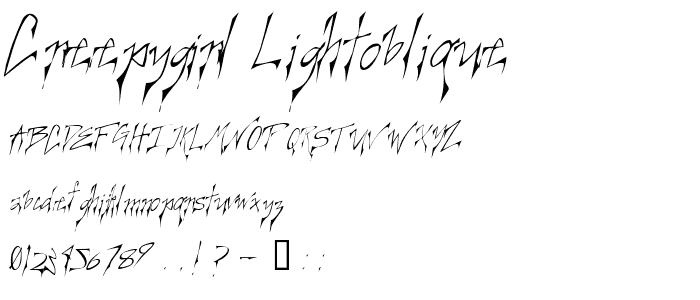 Creepygirl Lightoblique
ABCDEFGHIJKLMNOPQRSTUVWXYZ
abcdefghijklmnopqrstuvwxyz
0123456789 .,!?-▯::